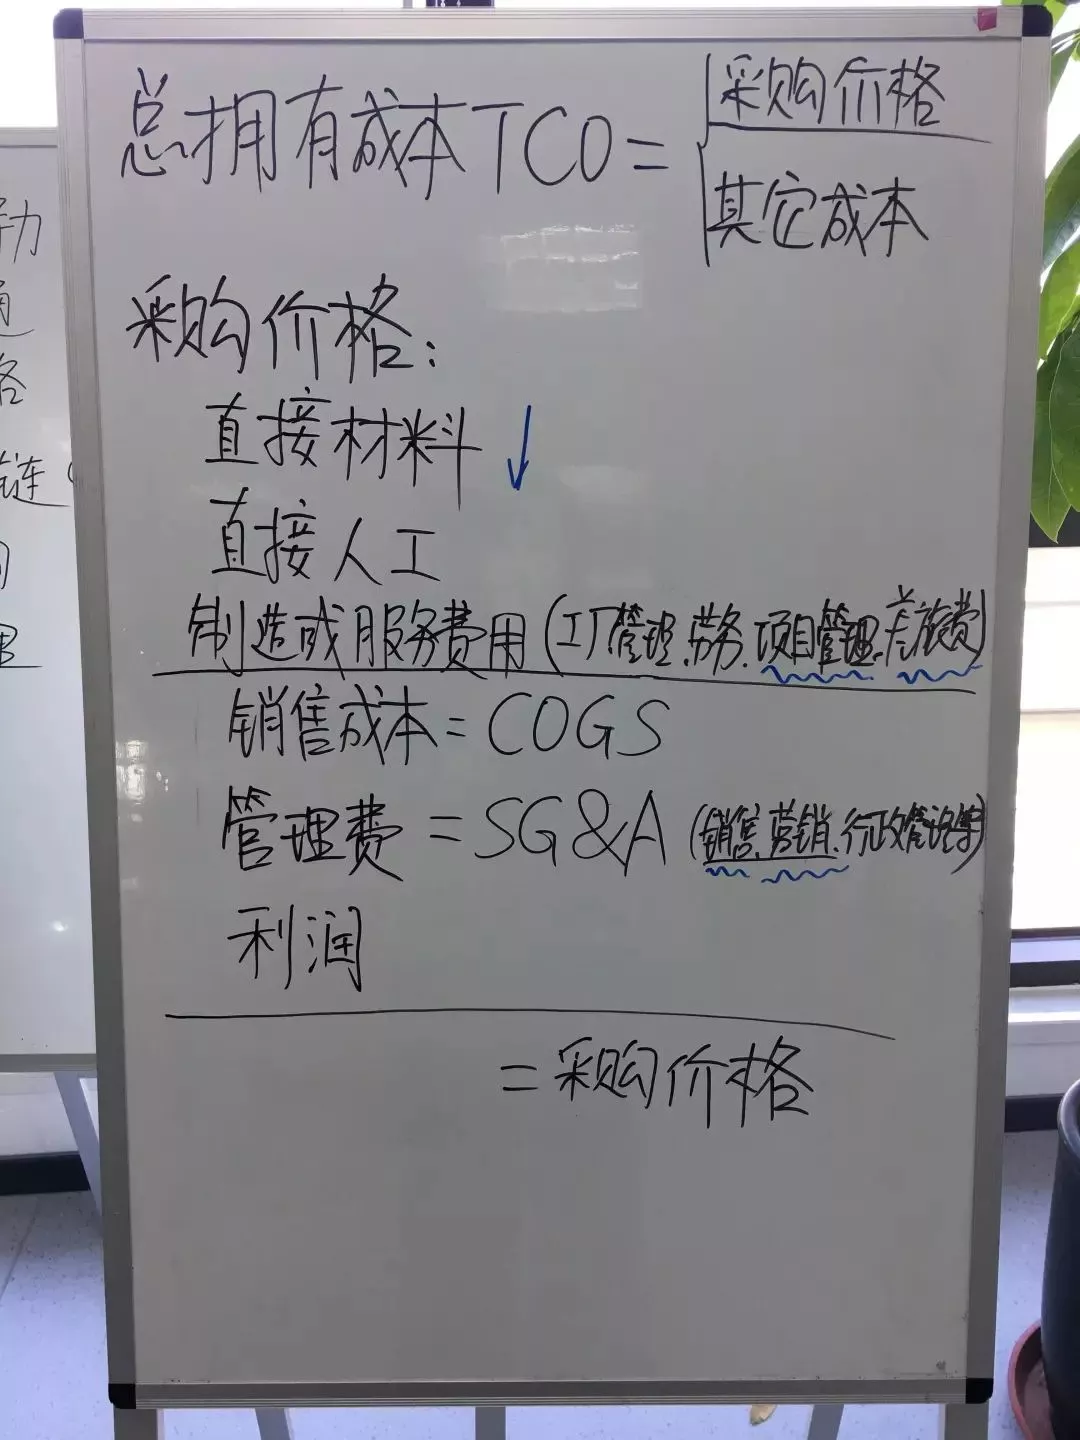 总拥有成本TCO=
采购价格
其它成本
采购价格:
直接材料↓
直接人工
制造或服务费用(工厂管理、劳务、项目管理、差旅费)
销售成本=COGS
管理费=SG&A(销售、营销、行政管理等)
利润
=采购价格
链